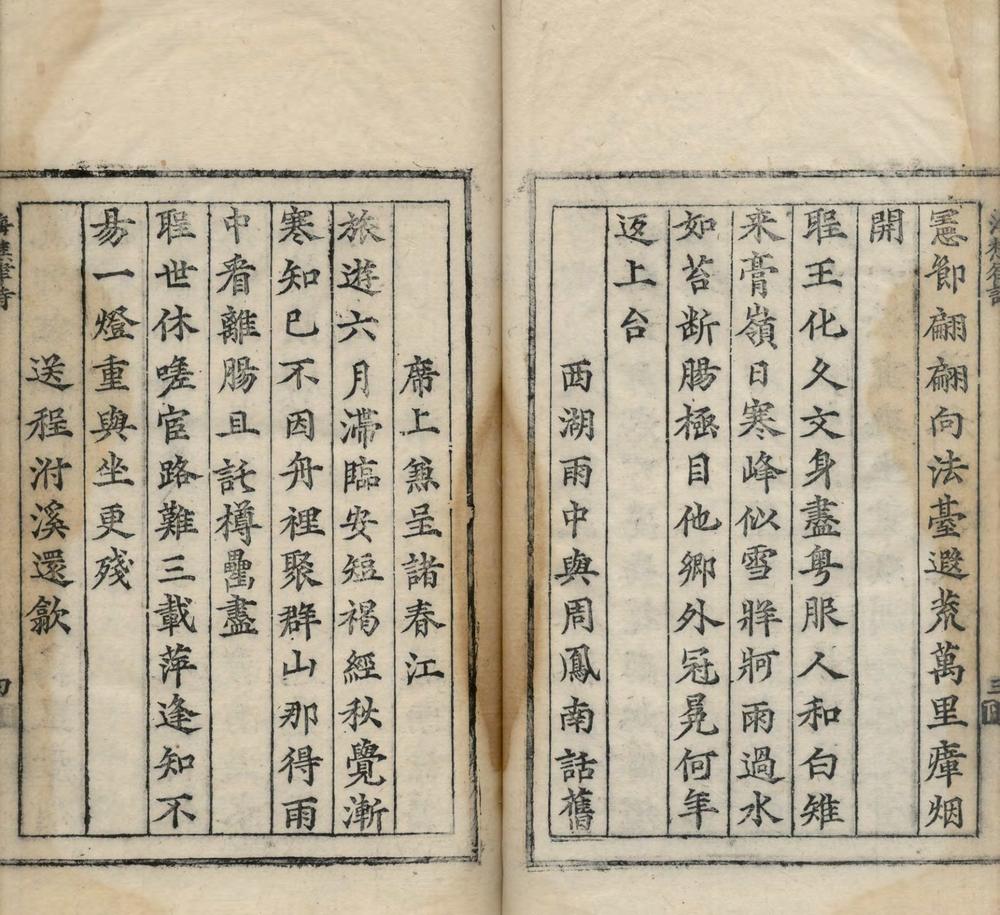 憲節翩翩向法臺遐荒萬里瘴烟
開
聖王化久文身盡粤服人和白雉
来膏嶺日寒峰似雪牂牁雨過水
如苔断腸極目他鄉外冠冕何年
返上台
西湖雨中與周鳳南話舊
席上兼呈諸春江
旅遊六月滯臨安短褐經秋覺漸
寒知已不因舟裡聚群山那得雨
中看離腸且託樽罍盡
聖世休嗟宦路難三載萍逢知不
易一燈重與坐更殘
送程泭溪還歙